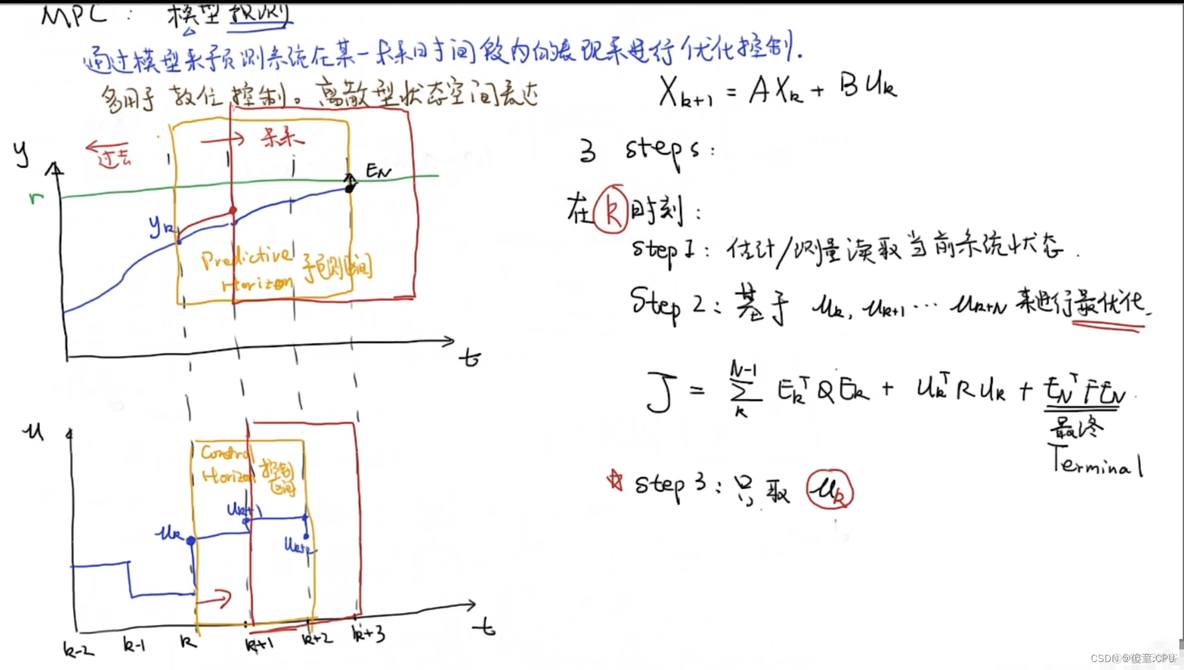 MPC: 模型预测
通过模型来预测系统在某一未来时间段内的表现来进行优化控制.
多用于 数位控制。离散型状态空间表达
X_{k+1} = AX_k + BU_k
y
过去
未来
r
E_N
y_k
Predictive
Horizon 预测区间
t
u
Control
Horizon 控制
区间
u_k
u_{k+1}
u_{k+2}
k-2 k-1 k k+1 k+2 k+3 t
3 steps:
在 k 时刻:
step 1: 估计/测量读取当前系统状态.
Step 2: 基于 u_k, u_{k+1} ... u_{k+N} 来进行最优化.
J = \sum_k^{N-1} E_k^T Q E_k + U_k^T R U_k + E_N^T F E_N
最终
Terminal
☆ step 3: 只取 u_k
CSDN @傻童:CPU